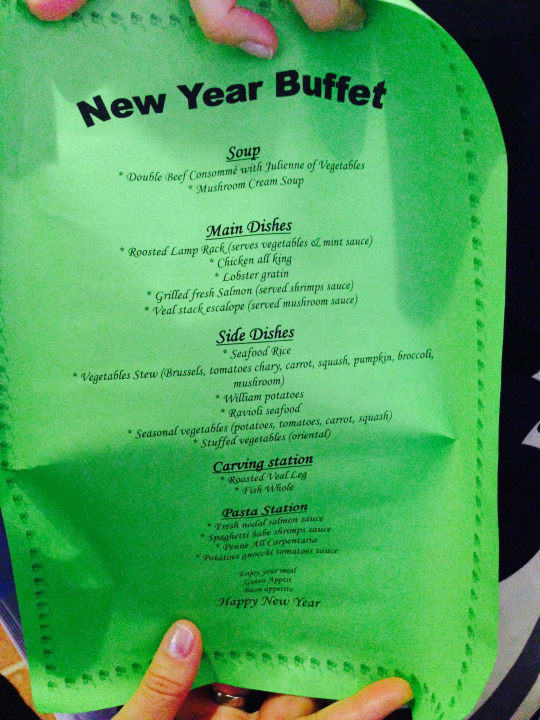 New Year Buffet
Soup
* Double Beef Consommé with Julienne of Vegetables
* Mushroom Cream Soup
Main Dishes
* Roosted Lamp Rack (serves vegetables & mint sauce)
* Chicken all king
* Lobster gratin
* Grilled fresh Salmon (served shrimps sauce)
* Veal stack escalope (served mushroom sauce)
Side Dishes
* Seafood Rice
* Vegetables Stew (Brussels, tomatoes chary, carrot, squash, pumpkin, broccoli,
mushroom)
* William potatoes
* Ravioli seafood
* Seasonal vegetables (potatoes, tomatoes, carrot, squash)
* Stuffed vegetables (oriental)
Carving station
* Roasted Veal Leg
* Fish Whole
Pasta Station
* Fresh nodal salmon sauce
* Spaghetti babe shrimps sauce
* Penne All Carpentaria
* Potatoes gnocchi tomatoes sauce
Enjoy your meal
Guten Apptit
Buon appetito
Happy New Year